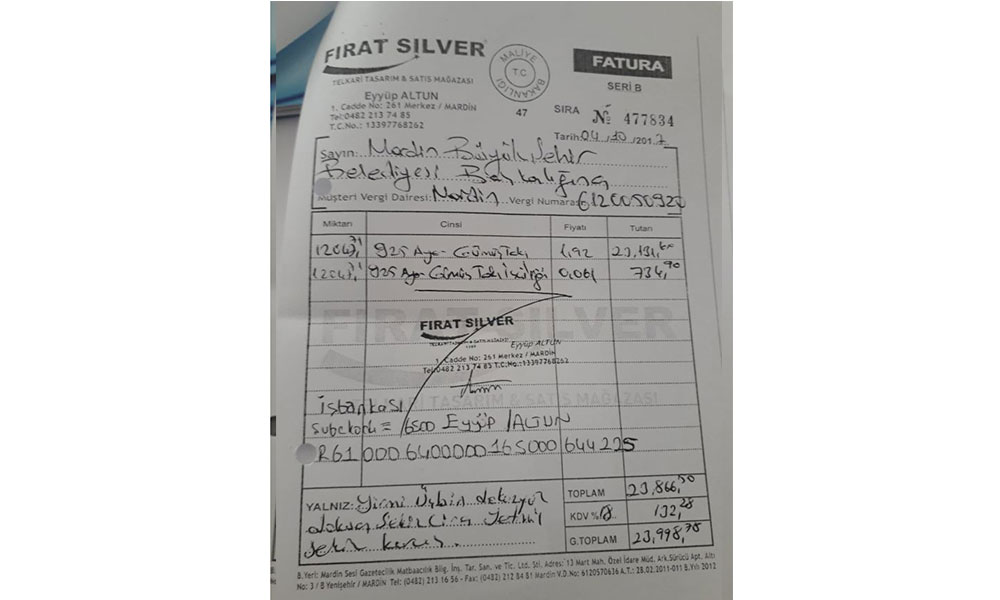 FIRAT SILVER
TELKARİ TASARIM & SATIŞ MAĞAZASI
Eyyüp ALTUN
1. Cadde No: 261 Merkez / MARDİN
Tel:0482 213 74 85
T.C.No.: 13397768262
MALİYE BAKANLIĞI
T.C.
47
FATURA
SERİ B
SIRA № 477834
Tarih:04/10/2017
Sayın: Mardin Büyükşehir
Belediyesi Başkanlığına
Müşteri Vergi Dairesi: Mardin Vergi Numarası: 6120050927
Miktarı Cinsi Fiyatı Tutarı
12047,71 925 Ayar Gümüş Takı 1,92 23,131,60
12047,71 925 Ayar Gümüş Takı İşçiliği 0,061 734,90
FIRAT SILVER
TELKARİ TASARIM & SATIŞ MAĞAZASI
FIRAT SILVER
Eyyüp ALTUN
1. Cadde No: 261 Merkez / MARDİN
Tel:0482 213 74 85 T.C.No.:13397768262
İşbankası
Şubekodu = 6500 Eyyüp ALTUN
R61 0006400000165000644225
YALNIZ: Yirmi Üçbin dokuzyüz
doksan Sekiz Lira Yetmiş
Sekiz kuruş.
TOPLAM 23,866,50
KDV %18 132,28
G.TOPLAM 23,998,78
B.Yeri: Mardin Sesi Gazetecilik Matbaacılık Bilg. İnş. Tar. San. ve Tic. Ltd. Sti. Adres: 13 Mart Mah. Özel İdare Müd. Ark.Sürücü Apt. Altı
No: 3 / B Yenişehir / MARDİN Tel: (0482) 213 16 56 - Fax: (0482) 212 84 51 Mardin V.D.No: 6120570636 A.T.: 28.02.2011-011 B.Yılı 2012